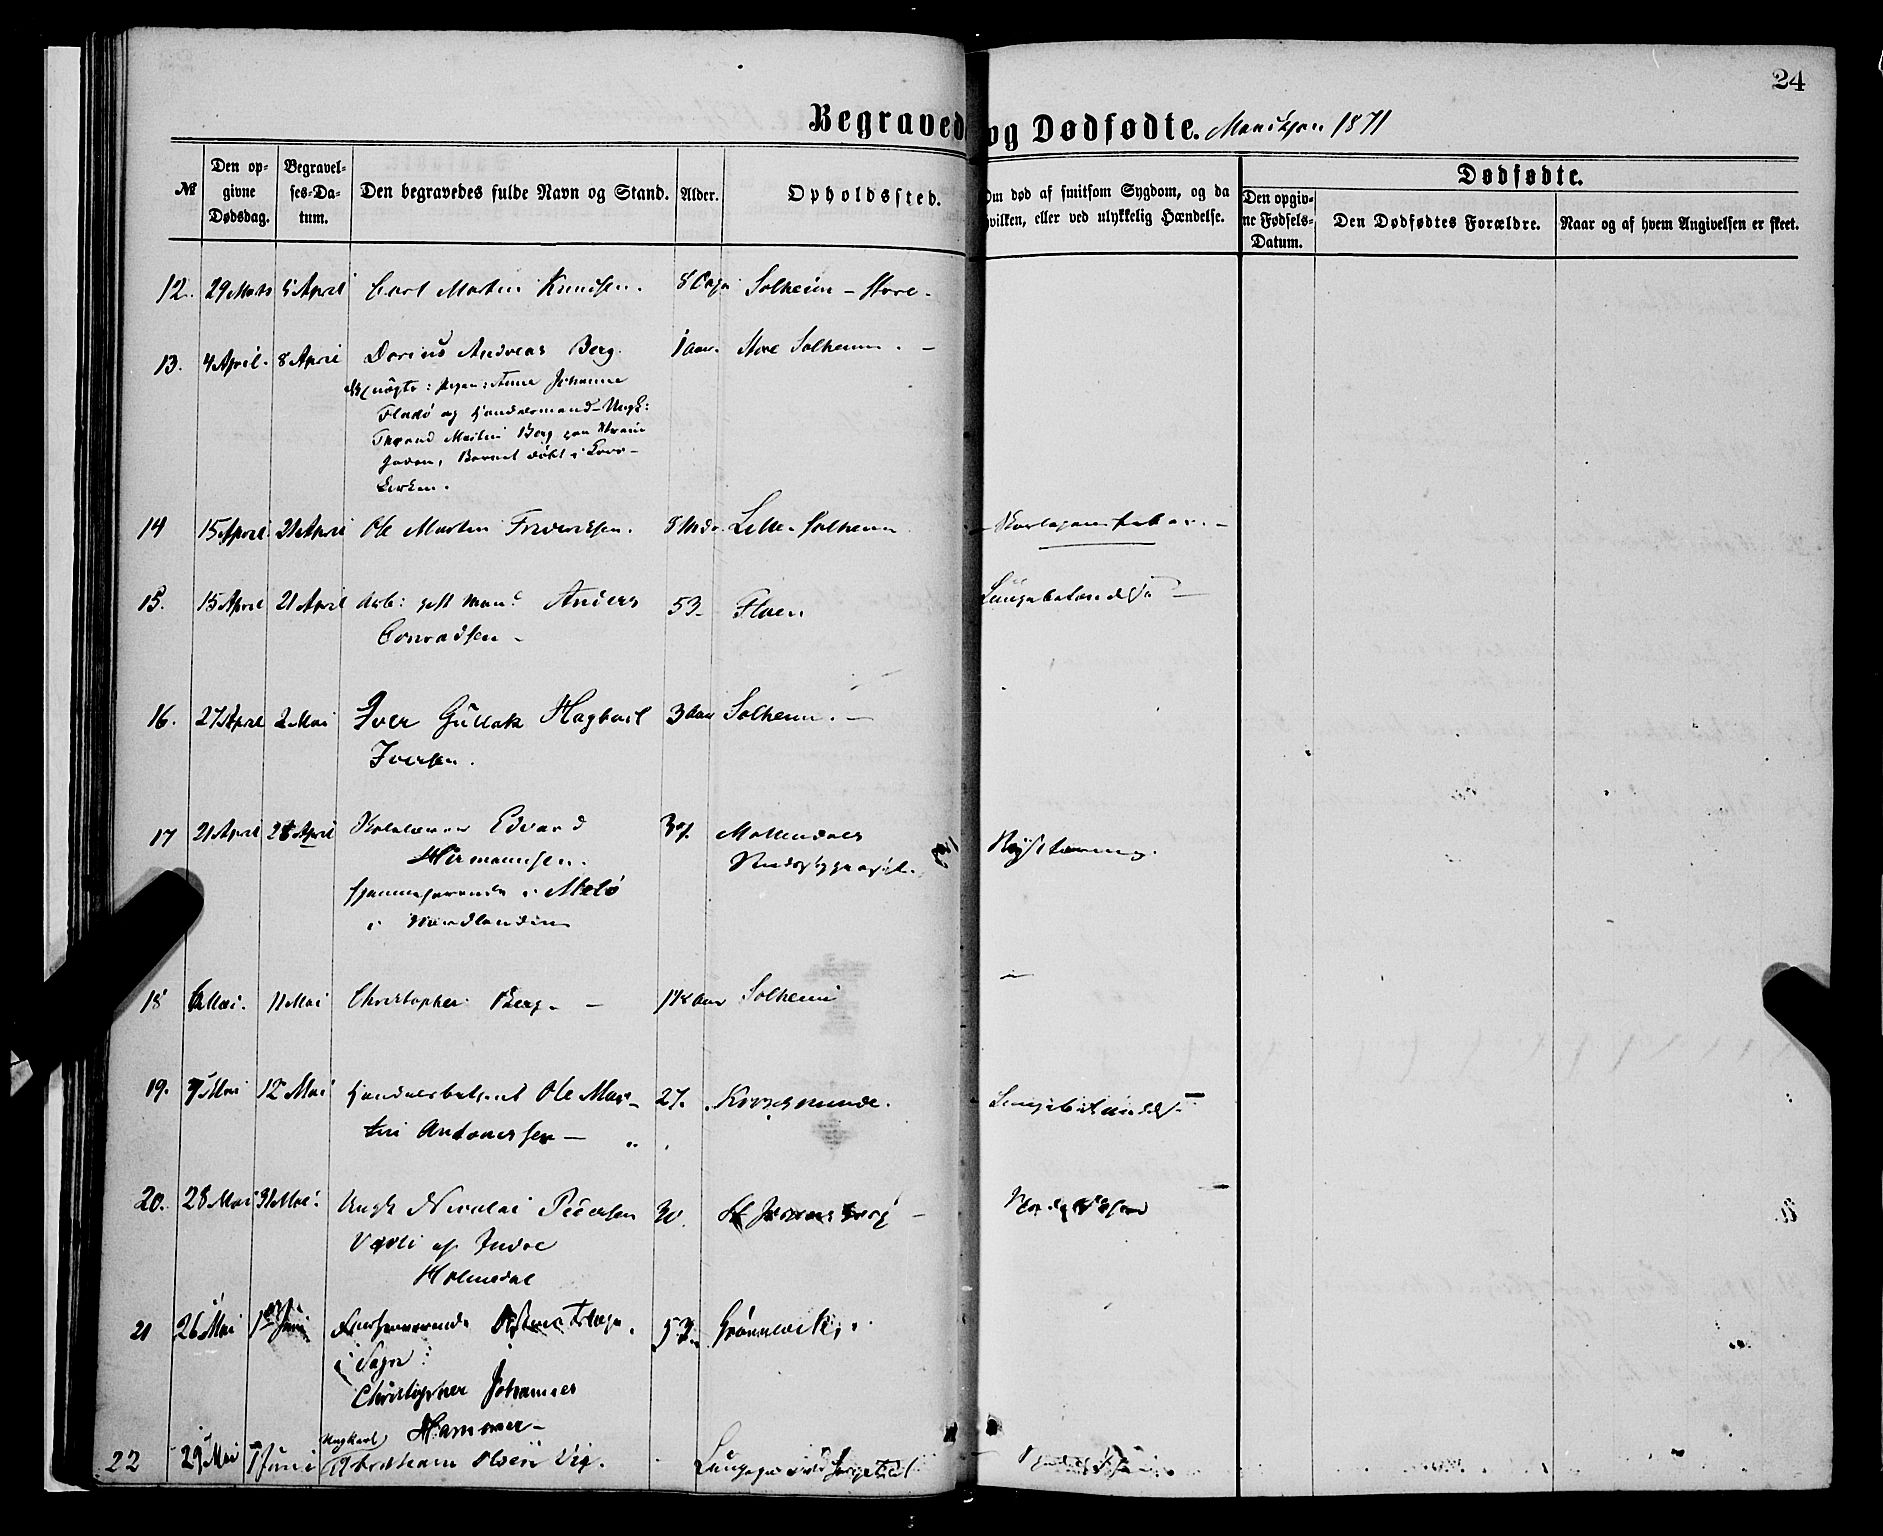 24
Begravede og Dødfødte. Mandkjøn 1871
No
Den opgivne Dødsdag.
Begravelses-Datum.
Den begravedes fulde Navn og Stand.
Alder.
Opholdssted.
Om død af smitsom Sygdom, og da hvilken, eller ved ulykkelig Hændelse.
Dødfødte.
Den opgivne Fødsels-Datum.
Den Dødfødtes Forældre.
Naar og af hvem Angivelsen er skeet.
12. 29 Marts 5 April Carl Martin Knudsen. 8 Dage Solheim - Store.
13. 4 April. 8 April Dorius Andreas Berg. 1 Aar. Store Solheim. -
uægte: Pigen: Anne Johanne
Fladö og Handelsmand Ungk:
Martin Berg paa
Barnet döbt i Kors-
kirken.
14 15 April 21 April Ole Martin Fredriksen. 8 Mdr. Lille Solheim
15. 15 April 21 April Arb: gift Mand Anders 53 - Floen Lungebetændelse -
Conradsen -
16. 27 April 2 Mai Iver Gullak Hagbart 3 Aar Solheim. -
Iversen.
17 21 April 28 April Edvard 37. Möllendals
Hermannsen.
hjemmehørende i Melö
i Nordlanden
18 6 Mai. 11 Mai Christopher Berg - Aar Solheim
19. 7 Mai 12 Mai Handelsbetjent Ole Mar- 27. Lungebetændelse
tin Antonessen -
20. 28 Mai 31 Mai. Ungk Nicolai Pedersen 30. St Jørgens -
af Indre
Holmedal
21 26 Mai 1 Juni 53. Grönnevik.
i Sogn:
Christopher Johannes
Hammer -
22 29 Mai 7 Juni Ungkarl Abraham Olsen Vig. Lungegaardshospitalet